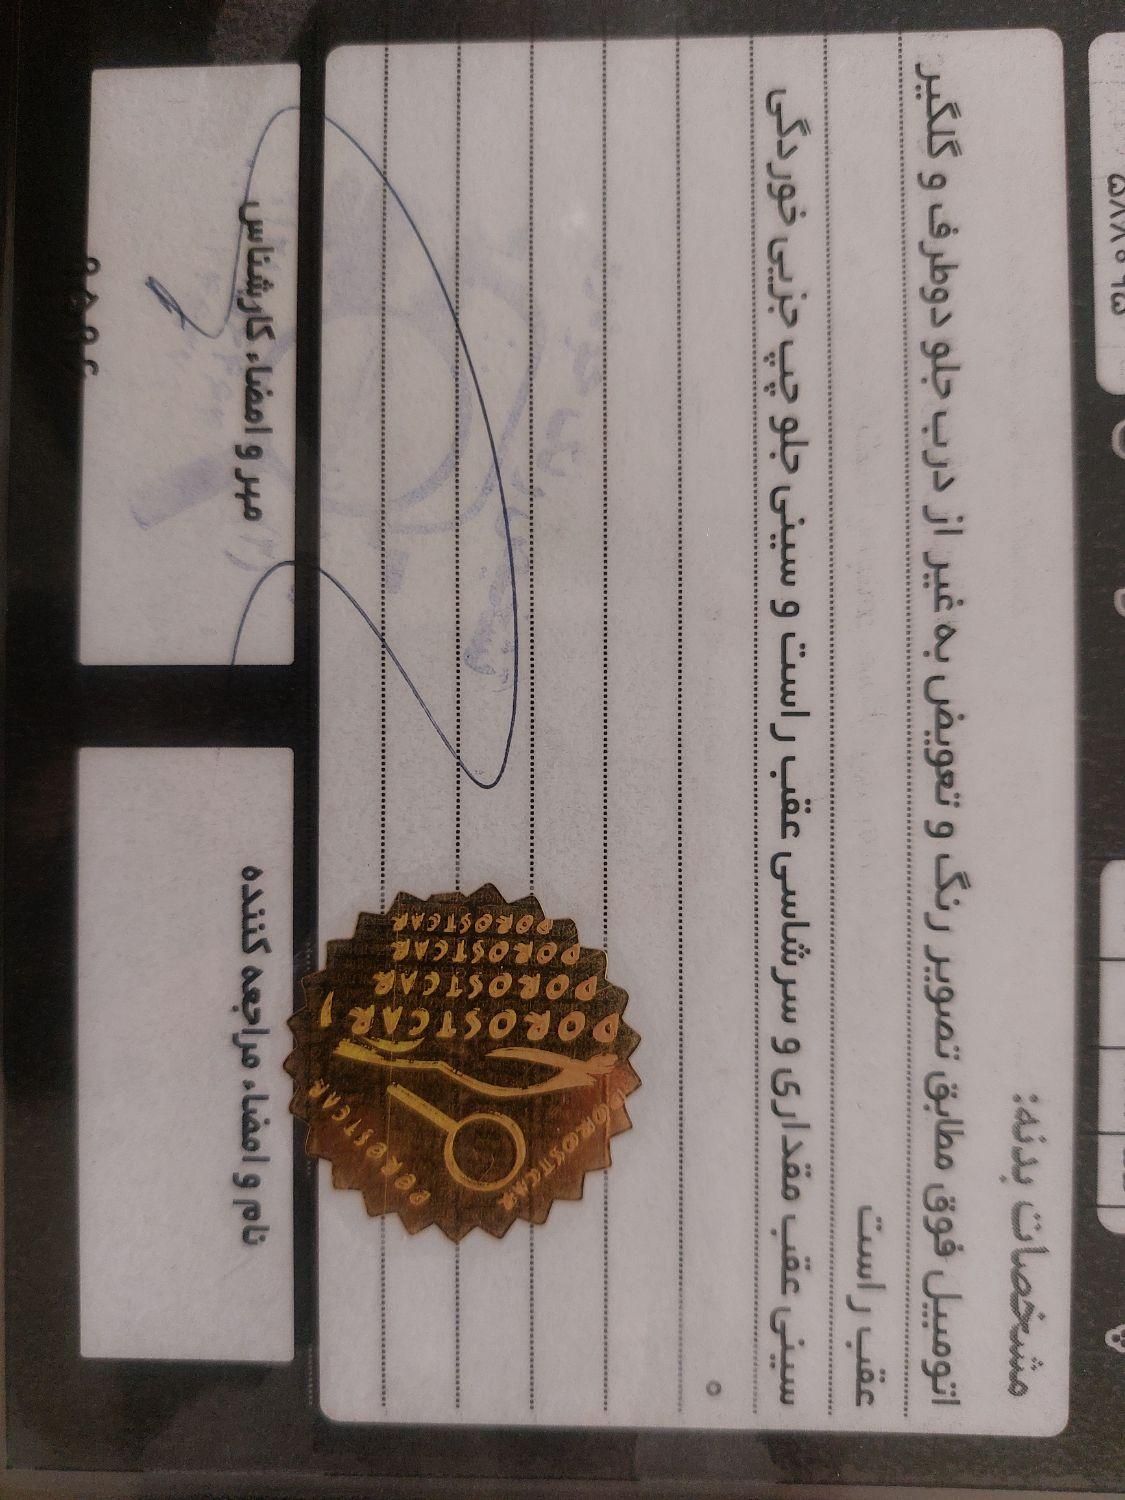 ۵۸۸۰۹۵
مشخصات بدنه:
اتومبیل فوق مطابق تصویر رنگ و تعویض به غیر از درب جلو دوطرف و گلگیر
عقب راست
سینی عقب مقداری و سرشاسی عقب راست و سینی جلو چپ جزیی خوردگی
نام و امضاء مراجعه کننده
مهر و امضاء کارشناس
POROSTCAR
POROSTCAR
POROSTCAR
POROSTCAR
POROSTCAR
POROSTCAR